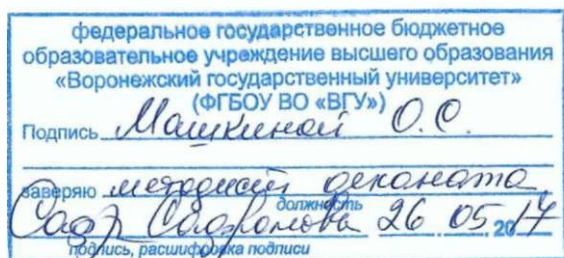 федеральное государственное бюджетное
образовательное учреждение высшего образования
«Воронежский государственный университет»
(ФГБОУ ВО «ВГУ»)
Подпись Машкиной О.С.
заверяю методист деканата
должность
Сафронова 26 05 2017
подпись, расшифровка подписи